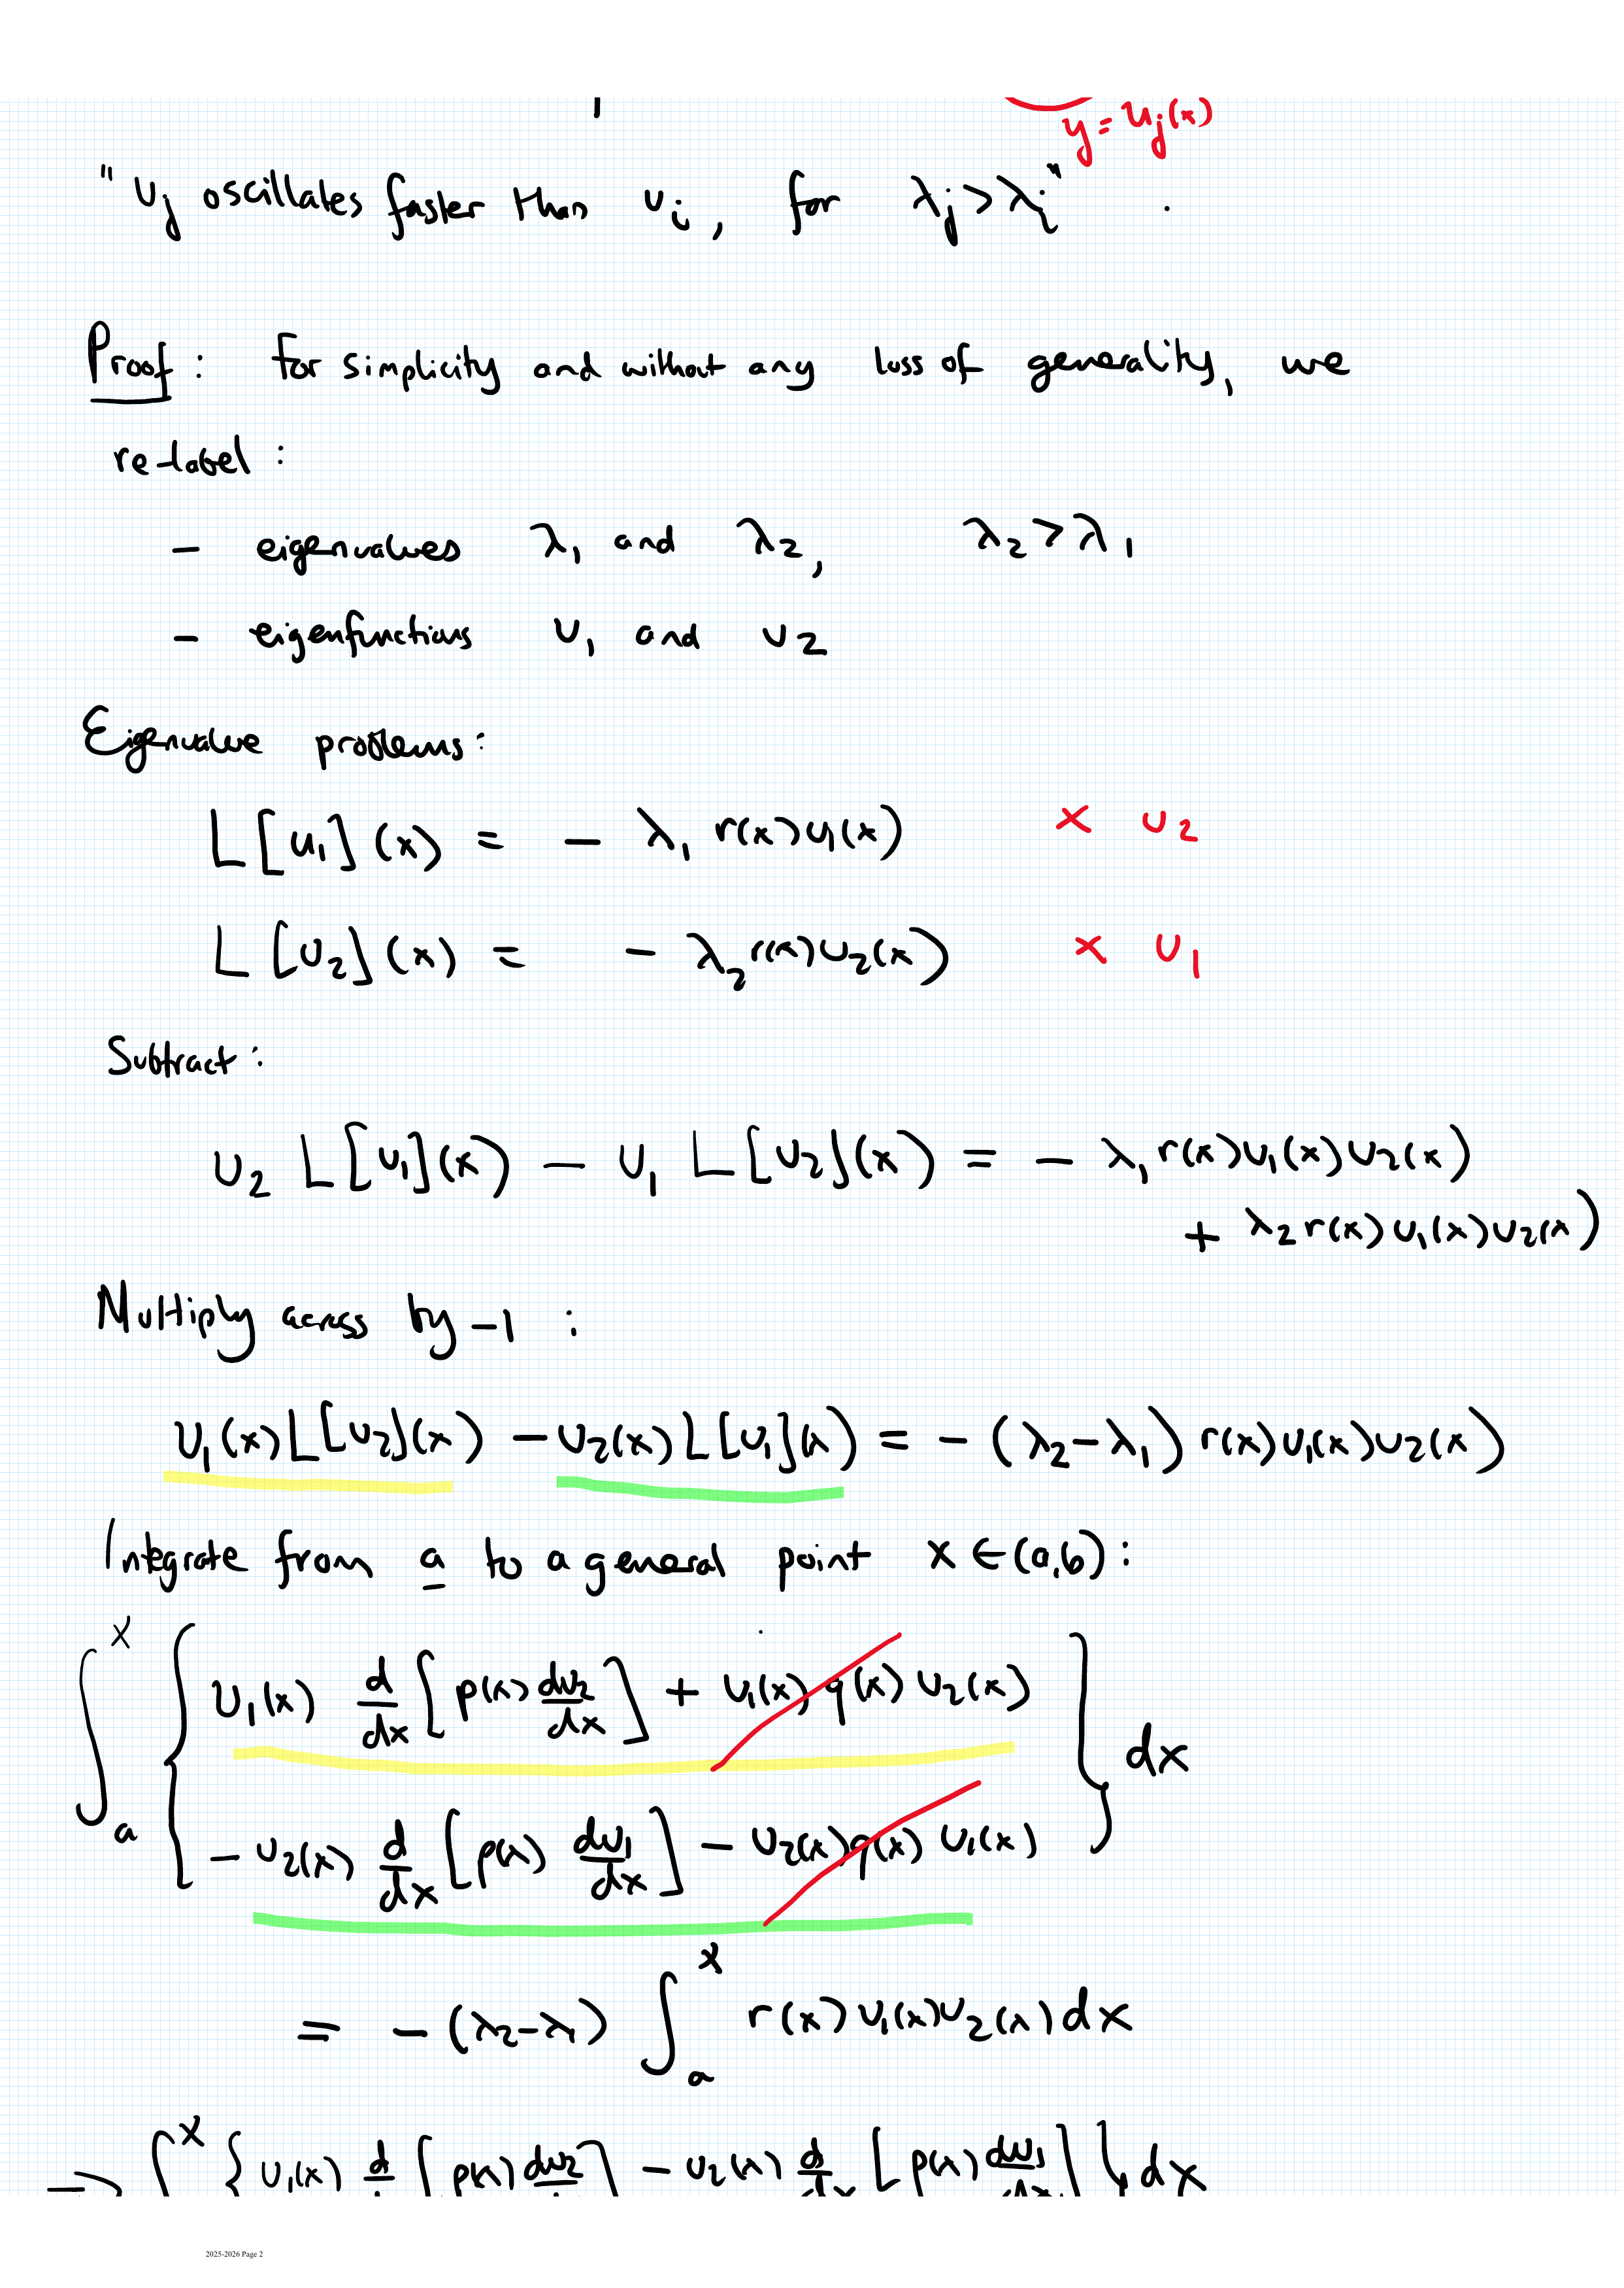 y = u_j(x)
"u_j oscillates faster than u_i, for λ_j > λ_i" .
Proof: For simplicity and without any loss of generality, we
re-label:
- eigenvalues λ_1 and λ_2, λ_2 > λ_1
- eigenfunctions u_1 and u_2
Eigenvalue problems:
L[u_1](x) = - λ_1 r(x)u_1(x) × u_2
L[u_2](x) = - λ_2 r(x)u_2(x) × u_1
Subtract:
u_2 L[u_1](x) - u_1 L[u_2](x) = - λ_1 r(x)u_1(x)u_2(x)
+ λ_2 r(x)u_1(x)u_2(x)
Multiply across by -1 :
u_1(x)L[u_2](x) - u_2(x)L[u_1](x) = - (λ_2-λ_1) r(x)u_1(x)u_2(x)
Integrate from a to a general point x ∈ (a,b):
∫_a^x { u_1(x) d/dx [p(x) du_2/dx] + u_1(x) q(x) u_2(x)
- u_2(x) d/dx [p(x) du_1/dx] - u_2(x)q(x) u_1(x) } dx
= - (λ_2-λ_1) ∫_a^x r(x)u_1(x)u_2(x)dx
⇒ ∫^x { u_1(x) d/dx [p(x) du_2/dx] - u_2(x) d/dx [p(x) du_1/dx] } dx
2025-2026 Page 2